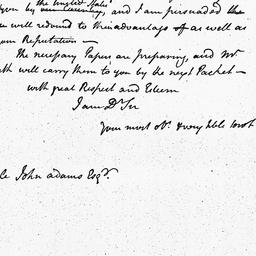 the United States
upon by our Country, and I am persuaded the
will redound to their advantage as well as
your Reputation —
The necessary Papers are preparing, and Mr
will carry them to you by the next Packet —
with great Respect and Esteem
I am Dr Sir
Your most obt. & very hble Servt
John adams Esqr.